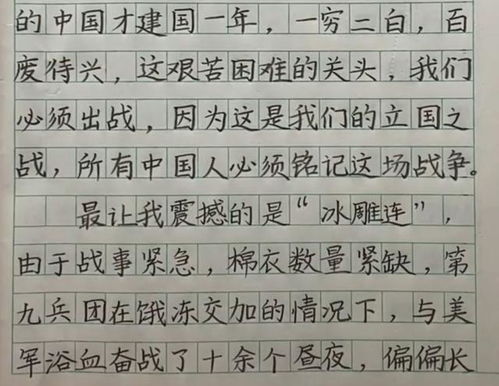 的中国才建国一年，一穷二白，百
废待兴，这艰苦困难的关头，我们
必须出战，因为这是我们的立国之
战，所有中国人必须铭记这场战争。
最让我震撼的是“冰雕连”，
由于战事紧急，棉衣数量紧缺，第
九兵团在饿冻交加的情况下，与美
军浴血奋战了十余个昼夜，偏偏长